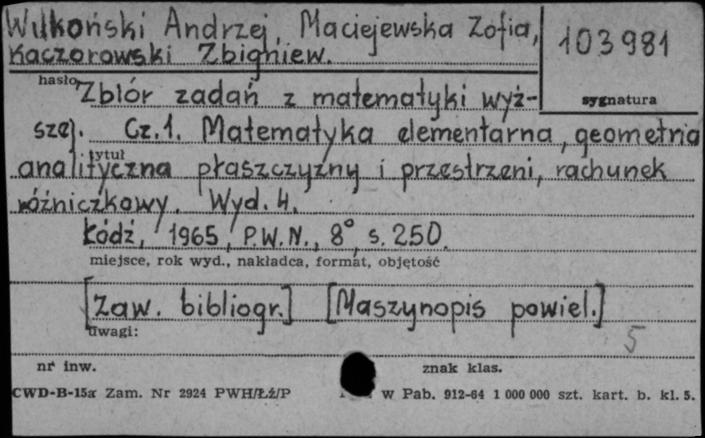 Wilkoński Andrzej, Maciejewska Zofia,
Kaczorowski Zbigniew.
103981
hasło
sygnatura
Zbiór zadań z matematyki wyż-
szej. Cz.1. Matematyka elementarna, geometria
tytuł
analityczna płaszczyzny i przestrzeni, rachunek
różniczkowy. Wyd. 4.
Łódź, 1965, P.W.N., 8°, s. 250.
miejsce, rok wyd., nakładca, format, objętość
[Zaw. bibliogr.] [Maszynopis powiel.]
uwagi:
5
nr inw.
znak klas.
CWD-B-15a Zam. Nr 2924 PWH/Łź/P w Pab. 912-64 1 000 000 szt. kart. b. kl. 5.